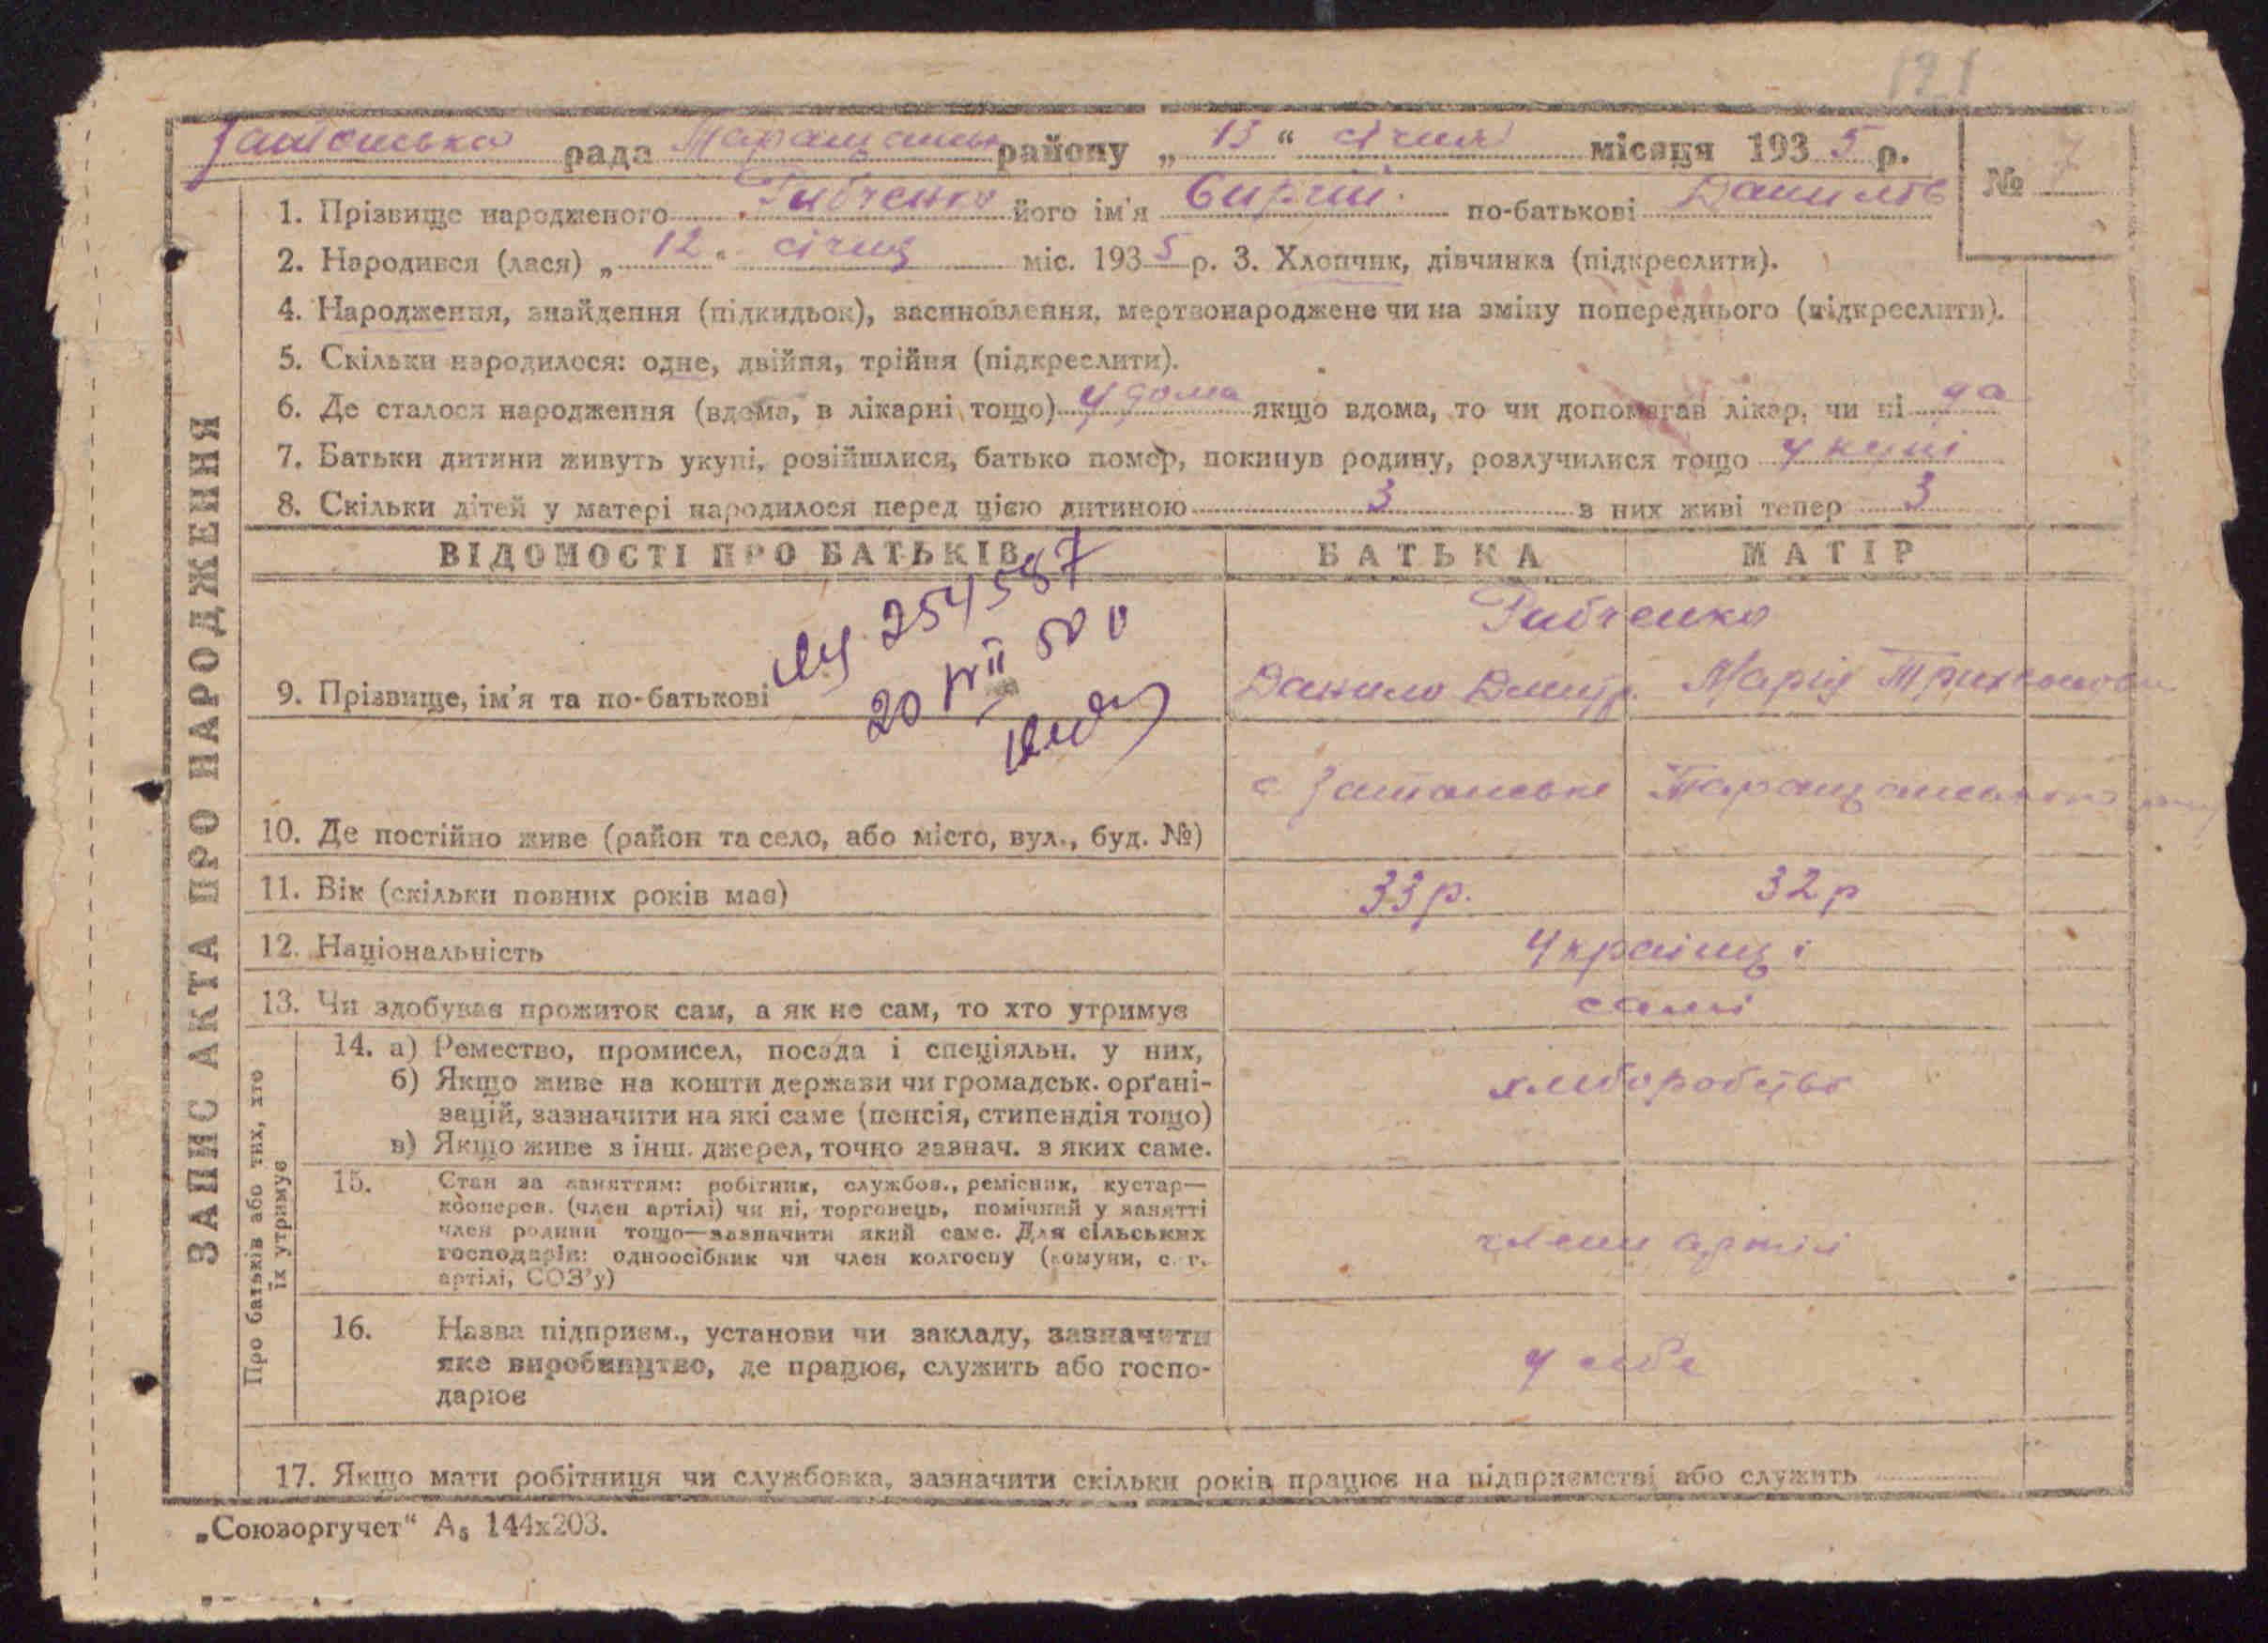 121
рада Таращанськ району „ 13 “ січня місяця 193 5 р.
№ 7
1. Прізвище народженого Рибченко його ім'я Сиргій по-батькові Данилів
2. Народився (лася) „ 12 “ січня міс. 193 5 р. 3. Хлопчик, дівчинка (підкреслити).
4. Народження, знайдення (підкидьок), засиновлення, мертвонароджене чи на зміну попереднього (підкреслити).
5. Скільки народилося: одне, двійня, трійня (підкреслити).
6. Де сталося народження (вдома, в лікарні тощо) у дома якщо вдома, то чи допомагав лікар, чи ні да
7. Батьки дитини живуть укупі, розійшлися, батько помер, покинув родину, розлучилися тощо у купі
8. Скільки дітей у матері народилося перед цією дитиною 3 з них живі тепер 3
ЗАПИС АКТА ПРО НАРОДЖЕННЯ
ВІДОМОСТІ ПРО БАТЬКІВ БАТЬКА МАТІР
254587
20 VII 50
Рибченко
9. Прізвище, ім'я та по-батькові Данило Дмитр. Марія
с. Таращанського
10. Де постійно живе (район та село, або місто, вул., буд. №)
11. Вік (скільки повних років має) 33 р. 32 р
12. Національність Українці
13. Чи здобуває прожиток сам, а як не сам, то хто утримує самі
Про батьків або тих, хто
їх утримує
14. а) Ремество, промисел, посада і спеціяльн. у них,
б) Якщо живе на кошти держави чи громадськ. орґані-
зацій, зазначити на які саме (пенсія, стипендія тощо)
в) Якщо живе з інш. джерел, точно зазнач. з яких саме.
хліборобство
15. Стан за заняттям: робітник, службов., ремісник, кустар—
кооперов. (член артілі) чи ні, торговець, помічний у занятті
член родини тощо—зазначити який саме. Для сільських
господарів: одноосібник чи член колгоспу (комуни, с. г.
артілі, СОЗ'у)
члени артілі
16. Назва підприєм., установи чи закладу, зазначити
яке виробництво, де працює, служить або госпо-
дарює
у себе
17. Якщо мати робітниця чи службовка, зазначити скільки років працює на підприємстві або служить
„Союзоргучет“ А₅ 144х203.